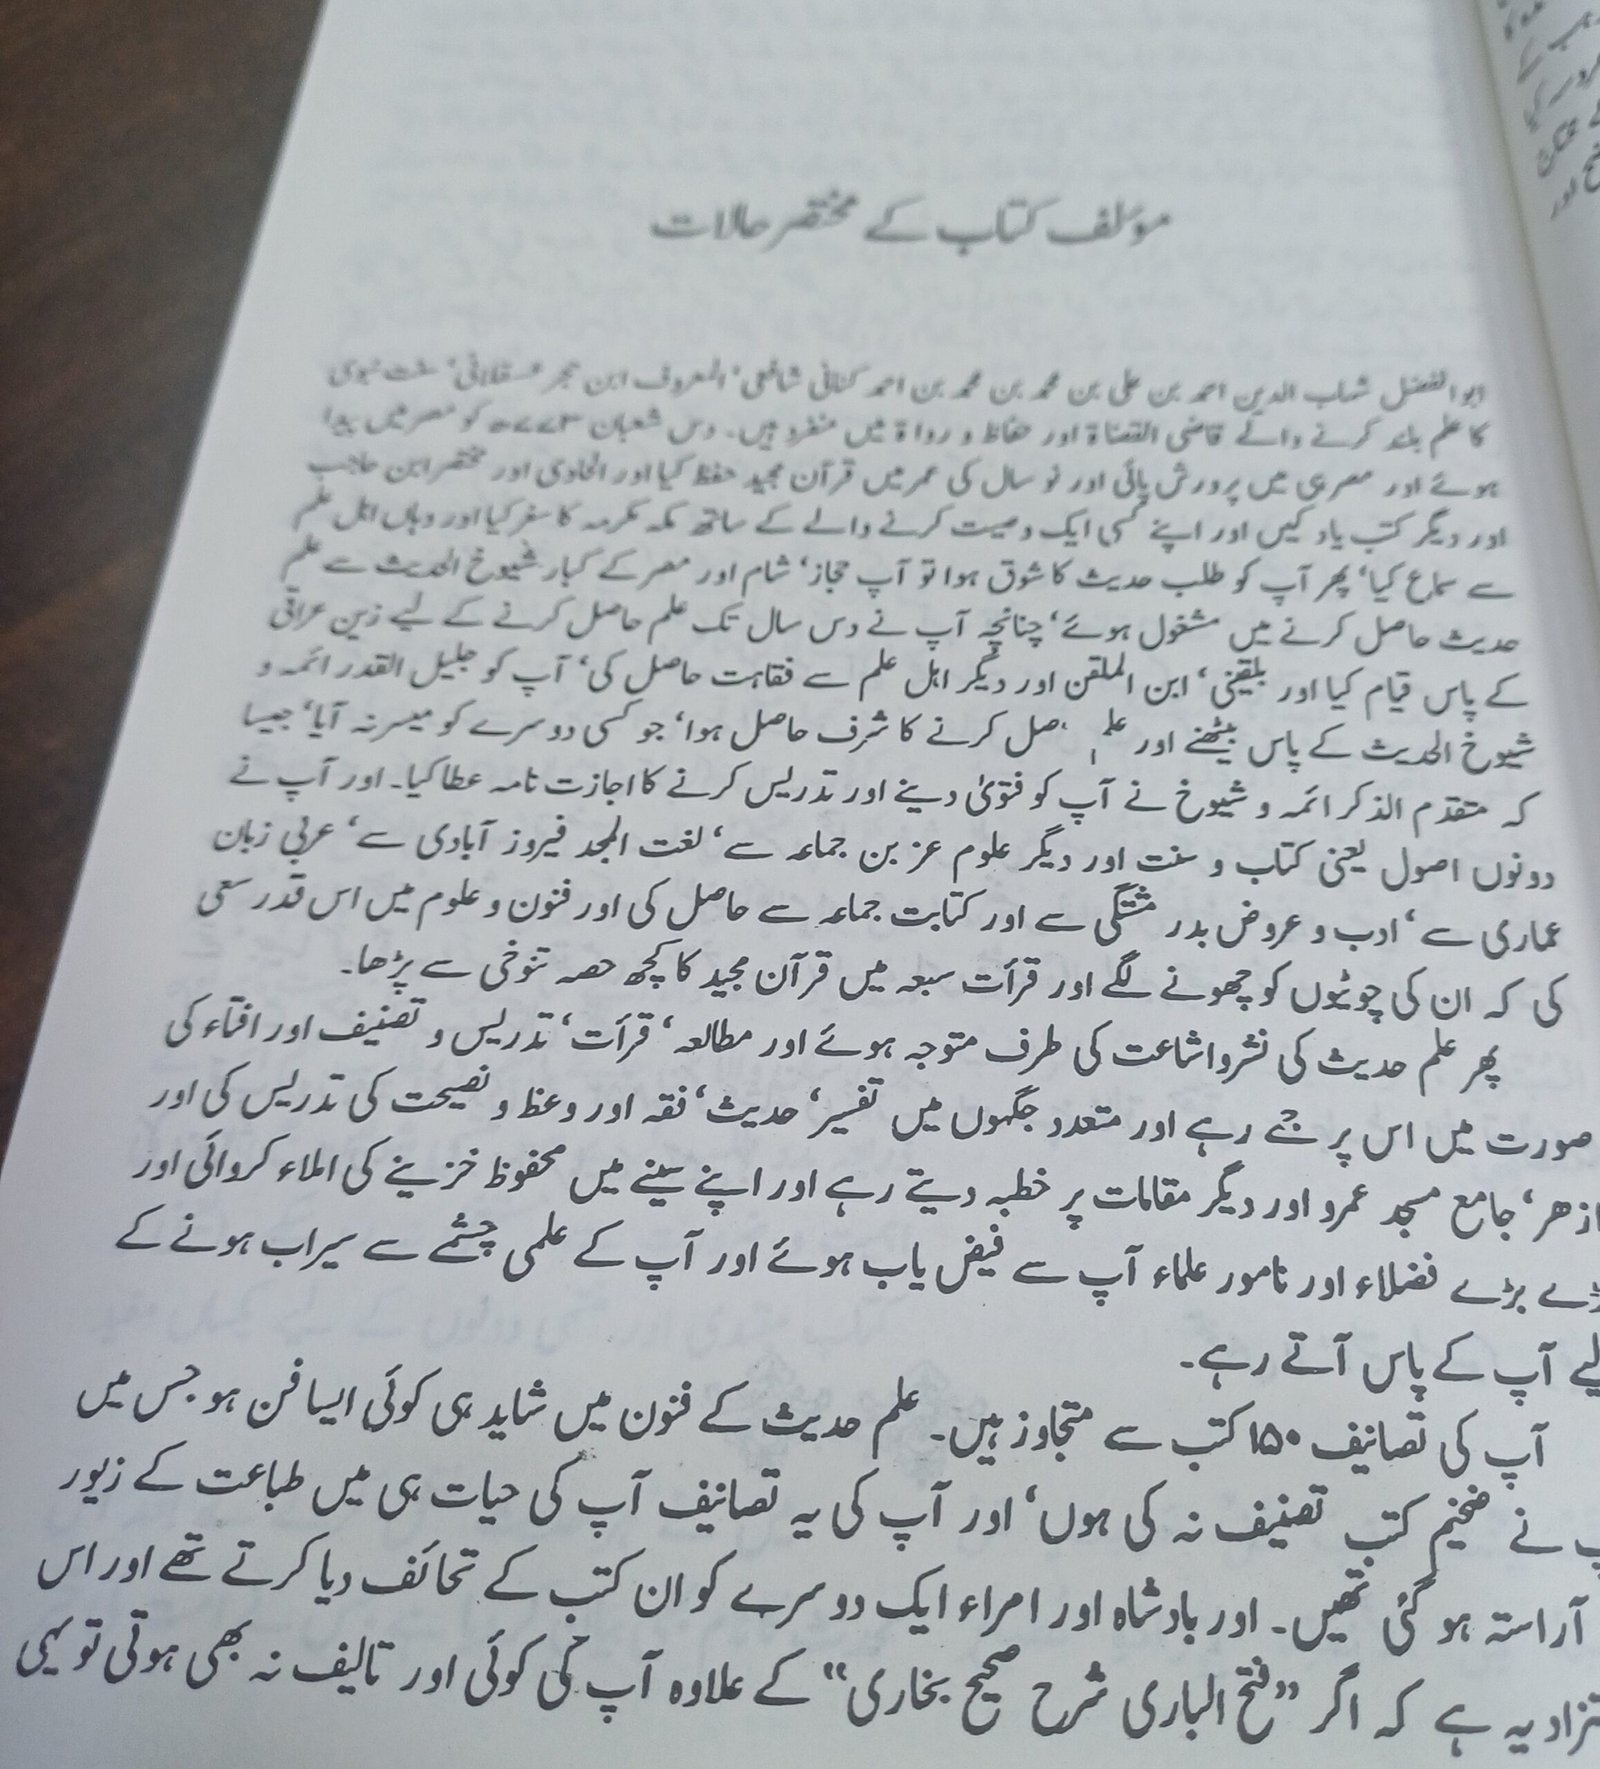 مؤلف کتاب کے مختصر حالات
ابوالفضل شہاب الدین احمد بن علی بن محمد بن محمد بن احمد کنانی شافعی‘ المعروف ابن حجر عسقلانی‘ سنت نبوی
کا علم بلند کرنے والے قاضی القضاۃ اور حفاظ و رواۃ میں منفرد ہیں۔ دس شعبان ۷۷۳ھ کو مصر میں پیدا
ہوئے اور مصر ہی میں پرورش پائی اور نو سال کی عمر میں قرآن مجید حفظ کیا اور الحاوی اور مختصر ابن حاجب
اور دیگر کتب یاد کیں اور اپنے کسی ایک وصیت کرنے والے کے ساتھ مکہ مکرمہ کا سفر کیا اور وہاں اہل علم
سے سماع کیا‘ پھر آپ کو طلب حدیث کا شوق ہوا تو آپ حجاز‘ شام اور مصر کے کبار شیوخ الحدیث سے علم
حدیث حاصل کرنے میں مشغول ہوئے‘ چنانچہ آپ نے دس سال تک علم حاصل کرنے کے لیے زین عراقی
کے پاس قیام کیا اور بلقینی‘ ابن الملقن اور دیگر اہل علم سے فقاہت حاصل کی‘ آپ کو جلیل القدر ائمہ و
شیوخ الحدیث کے پاس بیٹھنے اور علم حاصل کرنے کا شرف حاصل ہوا‘ جو کسی دوسرے کو میسر نہ آیا‘ جیسا
کہ متقدم الذکر ائمہ و شیوخ نے آپ کو فتویٰ دینے اور تدریس کرنے کا اجازت نامہ عطا کیا۔ اور آپ نے
دونوں اصول یعنی کتاب و سنت اور دیگر علوم عز بن جماعہ سے‘ لغت المجد فیروز آبادی سے‘ عربی زبان
عماری سے‘ ادب و عروض بدر مشتکی سے اور کتابت جماعہ سے حاصل کی اور فنون و علوم میں اس قدر سعی
کی کہ ان کی چوٹیوں کو چھونے لگے اور قرأت سبعہ میں قرآن مجید کا کچھ حصہ تنوخی سے پڑھا۔
پھر علم حدیث کی نشر و اشاعت کی طرف متوجہ ہوئے اور مطالعہ‘ قرأت‘ تدریس و تصنیف اور افتاء کی
صورت میں اس پر جمے رہے اور متعدد جگہوں میں تفسیر‘ حدیث‘ فقہ اور وعظ و نصیحت کی تدریس کی اور
ازھر‘ جامع مسجد عمرو اور دیگر مقامات پر خطبہ دیتے رہے اور اپنے سینے میں محفوظ خزینے کی املاء کروائی اور
بڑے بڑے فضلاء اور نامور علماء آپ سے فیض یاب ہوئے اور آپ کے علمی چشمے سے سیراب ہونے کے
لیے آپ کے پاس آتے رہے۔
آپ کی تصانیف ۱۵۰ کتب سے متجاوز ہیں۔ علم حدیث کے فنون میں شاید ہی کوئی ایسا فن ہو جس میں
نے ضخیم کتب تصنیف نہ کی ہوں‘ اور آپ کی یہ تصانیف آپ کی حیات ہی میں طباعت کے زیور
آراستہ ہو گئی تھیں۔ اور بادشاہ اور امراء ایک دوسرے کو ان کتب کے تحائف دیا کرتے تھے اور اس
یہ ہے کہ اگر ”فتح الباری شرح صحیح بخاری“ کے علاوہ آپ کی کوئی اور تالیف نہ بھی ہوتی تو یہی